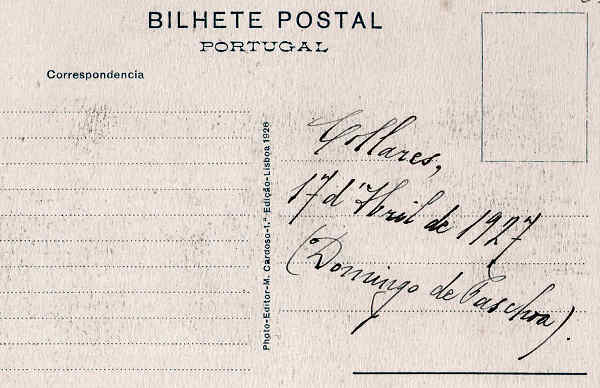 BILHETE POSTAL
PORTUGAL
Correspondencia
Photo-Editor-M. Cardoso-1,ª Edição-Lisboa 1926
Collares,
17 d'Abril de 1927
(Domingo de Paschoa).